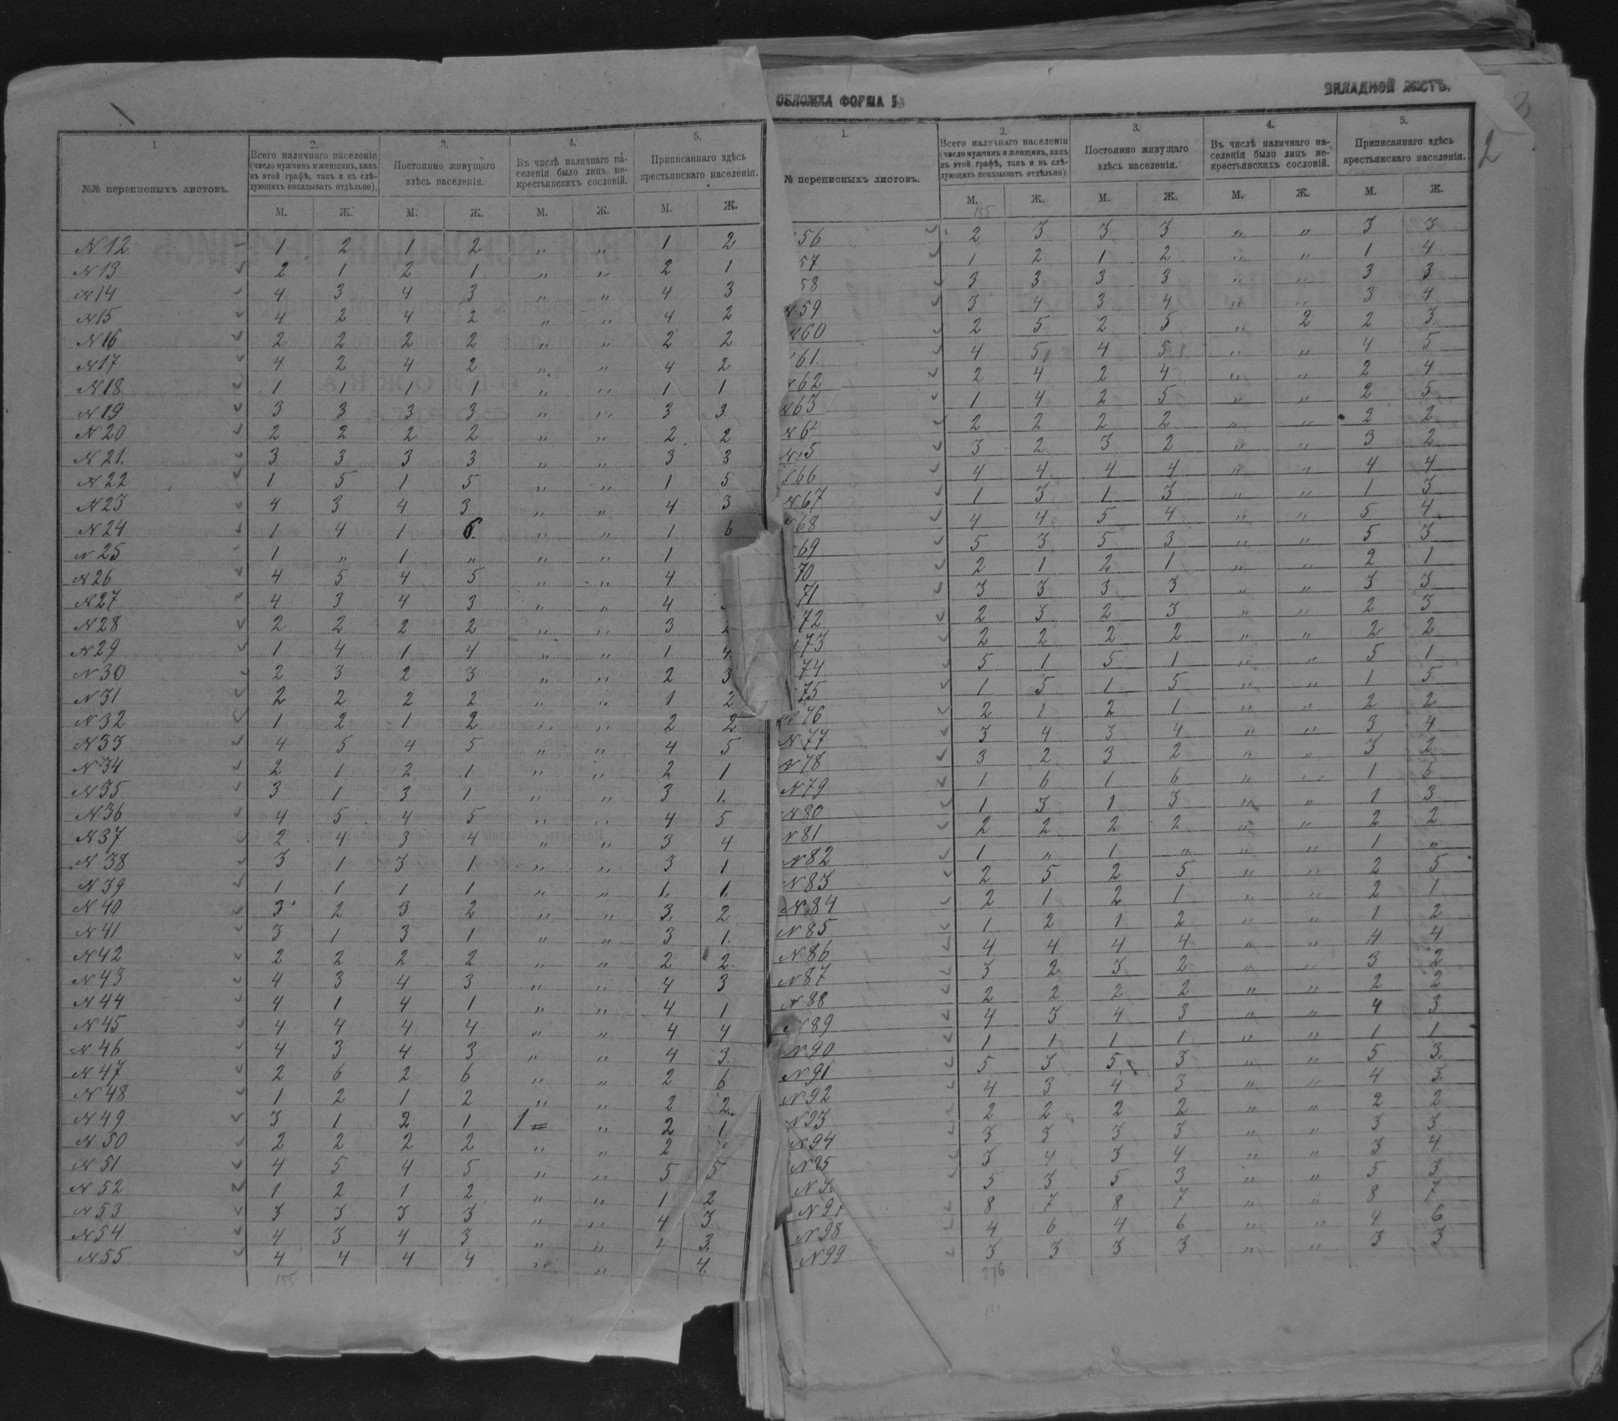 ОБЛОЖКА ФОРМА
ВКЛАДНОЙ ЛИСТЪ.
2
1
2.
3.
4.
5.
№№ переписныхъ листовъ.
Всего наличнаго населенія
(число мужчинъ и женщинъ, какъ
въ этой графѣ, такъ и въ слѣ-
дующихъ показывать отдѣльно)
Постоянно живущаго
здѣсь населенія.
Въ числѣ наличнаго на-
селенія было лицъ не-
крестьянскихъ сословій.
Приписаннаго здѣсь
крестьянскаго населенія.
М. Ж. М. Ж. М. Ж. М. Ж.
№12 1 2 1 2 „ „ 1 2
№13 2 1 2 1 „ „ 2 1
№14 4 3 4 3 „ „ 4 3
№15 4 2 4 2 „ „ 4 2
№16 2 2 2 2 „ „ 2 2
№17 4 2 4 2 „ „ 4 2
№18 1 1 1 1 „ „ 1 1
№19 3 3 3 3 „ „ 3 3
№20 2 2 2 2 „ „ 2 2
№21. 3 3 3 3 „ „ 3 3
№22 1 5 1 5 „ „ 1 5
№23 4 3 4 3 „ „ 4 3
№24 1 4 1 6. „ „ 1 6
№25 1 „ 1 „ „ „ 1
№26 4 5 4 5 „ „ 4
№27 4 3 4 3 „ „ 4
№28 2 2 2 2 „ „ 3
№29 1 4 1 4 „ „ 1 4
№30 2 3 2 3 „ „ 2 3
№31 2 2 2 2 „ „ 1 2
№32 1 2 1 2 „ „ 2 2
№33 4 5 4 5 „ „ 4 5
№34 2 1 2 1 „ „ 2 1
№35 3 1 3 1 „ „ 3 1.
№36 4 5 4 5 „ „ 4 5
№37 2 4 3 4 „ „ 3 4
№38 3 1 3 1 „ „ 3 1
№39 1 1 1 1 „ „ 1. 1.
№40 3 2 3 2 „ „ 3. 2
№41 3 1 3 1 „ „ 3 1.
№42 2 2 2 2 „ „ 2 2.
№43 4 3 4 3 „ „ 4 3
№44 4 1 4 1 „ „ 4 1
№45 4 4 4 4 „ „ 4 4
№46 4 3 4 3 „ „ 4 3.
№47 2 6 2 6 „ „ 2 6
№48 1 2 1 2 „ „ 2 2.
№49 3 1 2 1 1 „ 2 1
№50 2 2 2 2 „ „ 2
№51 4 5 4 5 „ „ 5 5
№52 1 2 1 2 „ „ 1 2
№53 3 3 3 3 „ „ 4 3
№54 4 3 4 3 „ „ 4 3.
№55 4 4 4 4 „ „ 4.
185
1.
2.
3.
4.
5.
№ переписныхъ листовъ.
Всего наличнаго населенія
(число мужчинъ и женщинъ, какъ
въ этой графѣ, такъ и въ слѣ-
дующихъ показывать отдѣльно)
Постоянно живущаго
здѣсь населенія.
Въ числѣ наличнаго на-
селенія было лицъ не-
крестьянскихъ сословій.
Приписаннаго здѣсь
крестьянскаго населенія.
М. Ж. М. Ж. М. Ж. М. Ж.
56 2 3 3 3 „ „ 3 3
57 1 2 1 2 „ „ 1 4
58 3 3 3 3 „ „ 3 3
№59 3 4 3 4 „ „ 3 4
№60 2 5 2 5 „ 2 2 3
61. 4 5 4 5 „ „ 4 5
№62 2 4 2 4 „ „ 2 4
№63 1 4 2 5 „ „ 2 5
№6 2 2 2 2 „ „ 2 2
№ 5 3 2 3 2 „ „ 3 2
66 4 4 4 4 „ „ 4 4
№67 1 3 1 3 „ „ 1 3
68 4 4 5 4 „ „ 5 4
69 5 3 5 3 „ „ 5 3
70 2 1 2 1 „ „ 2 1
71 3 3 3 3 „ „ 3 3
72 2 3 2 3 „ „ 2 3
73 2 2 2 2 „ „ 2 2
74 5 1 5 1 „ „ 5 1
75 1 5 1 5 „ „ 1 5
76 2 1 2 1 „ „ 2 2
№77 3 4 3 4 „ „ 3 4
№78 3 2 3 2 „ „ 3 2
№79 1 6 1 6 „ „ 1 6
№80 1 3 1 3 „ „ 1 3
№81 2 2 2 2 „ „ 2 2
№82 1 „ 1 „ „ „ 1 „
№83 2 5 2 5 „ „ 2 5
№84 2 1 2 1 „ „ 2 1
№85 1. 2 1 2 „ „ 1 2
№86 4 4 4 4 „ „ 4 4
№87 3 2 3 2 „ „ 3 2
№88 2 2 2 2 „ „ 2 2
№89 4 3 4 3 „ „ 4 3
№90 1 1 1 1 „ „ 1 1
№91 5 3 5 3 „ „ 5 3.
№92 4 3 4 3 „ „ 4 3.
№93 2 2 2 2 „ „ 2 2
№94 3 3 3 3 „ „ 3 3
№95 3 4 3 4 „ „ 3 4.
№9 5 3 5 3 „ „ 5 3
№9 8 7 8 7 „ „ 8 7
№98 4 6 4 6 „ „ 4 6
№99 3 3 3 3 „ „ 3 3